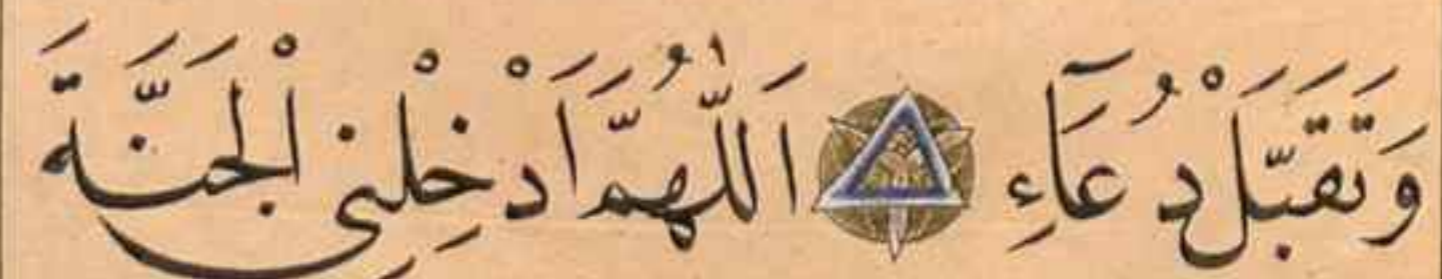 وَتَقَبَّلْ دُعَآءِ اَللّٰهُمَّ اَدْخِلْنِى الْجَنَّةَ